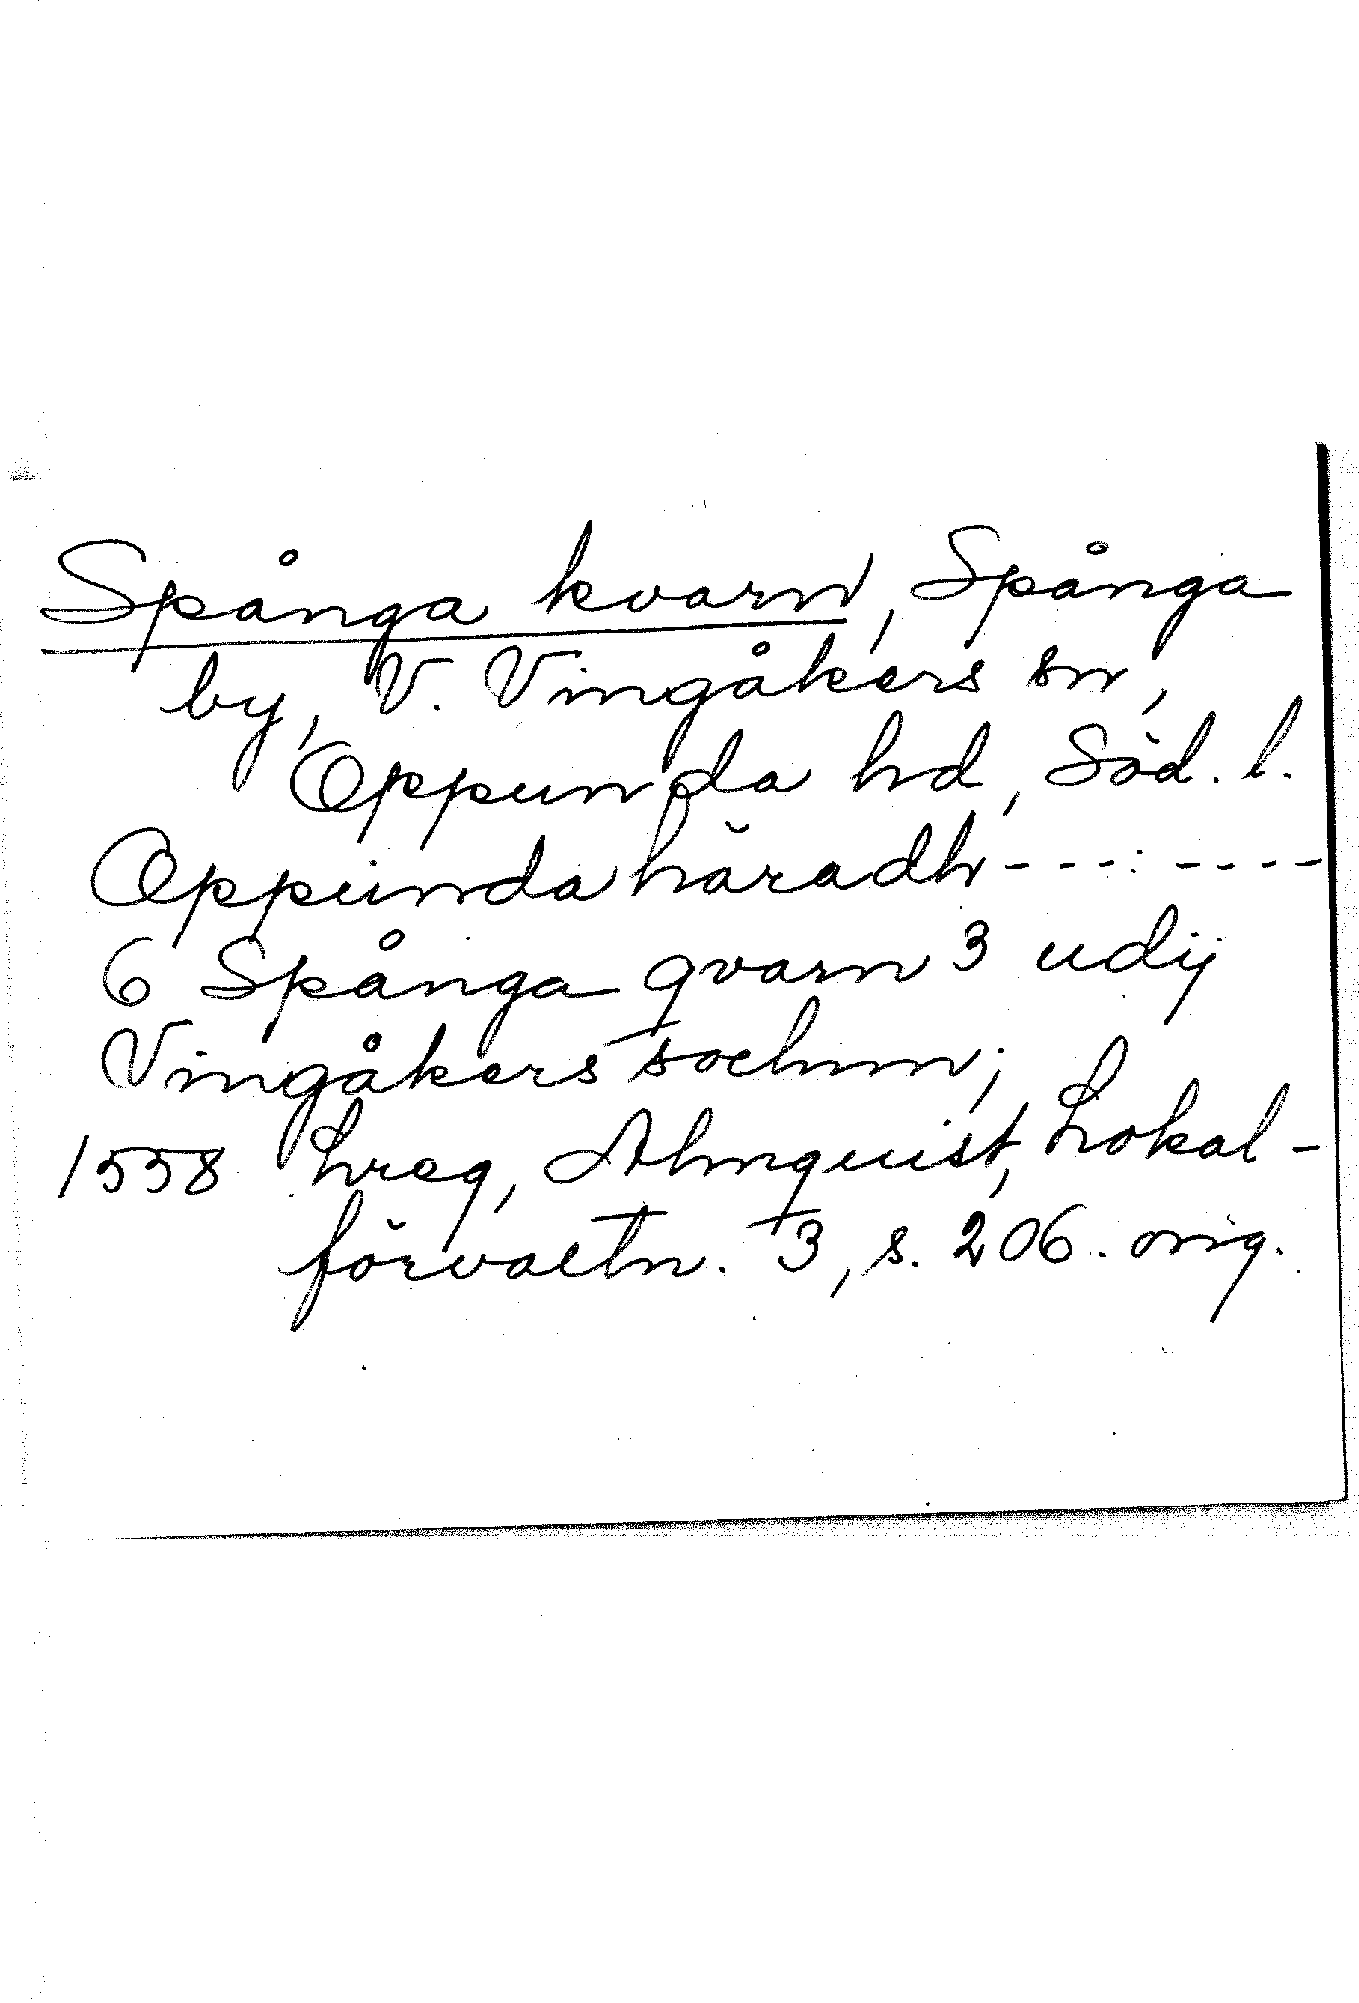 Spånga kvarn, Spånga
by, V. Vingåkers sn,
Oppunda hd, Söd. l.
Oppunda häradh - - - : - - - -
6 Spånga qvarn 3 udij
Vingåkers sochnn;
1558 Lreg, Almquist, Lokal-
förvaltn. 3, s. 206. orig.